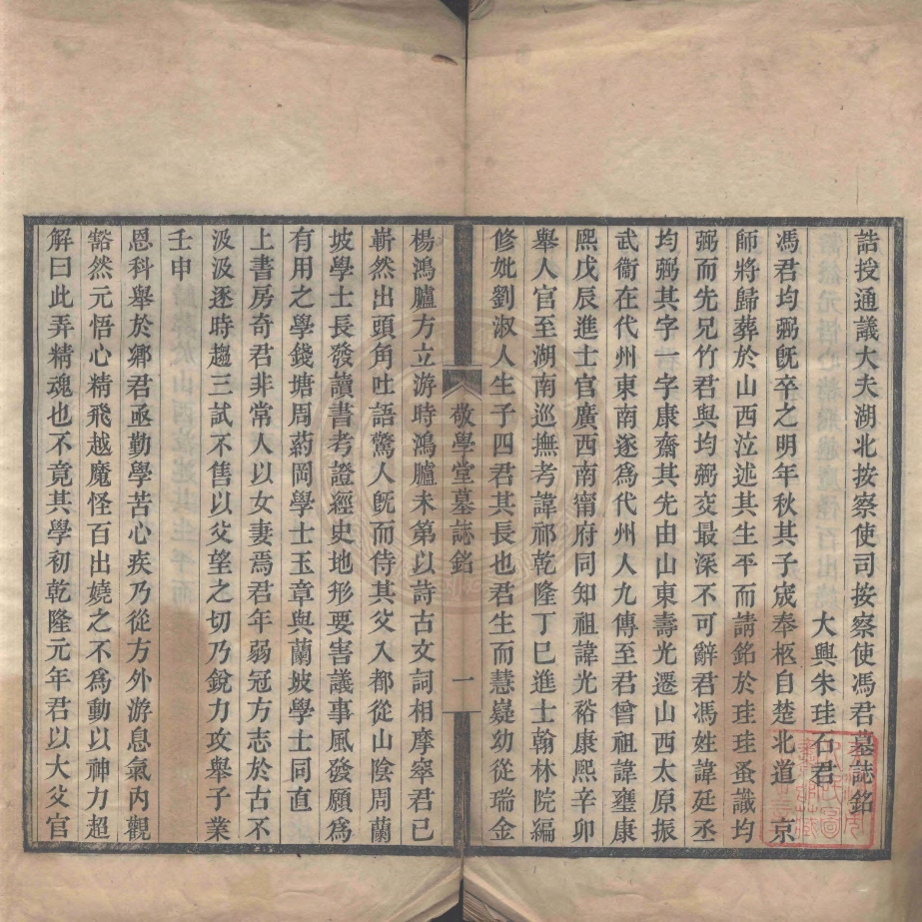 誥授通議大夫湖北按察使司按察使馮君墓誌銘
大興朱珪石君
馮君均弼旣卒之明年秋其子宬奉柩自楚北道 京
師將歸葬於山西泣述其生平而請銘於珪珪蚤識均
弼而先兄竹君與均弼交最深不可辭君馮姓諱廷丞
均弼其字一字康齋其先由山東壽光遷山西太原振
武衞在代州東南遂爲代州人九傳至君曾祖諱壅康
熙戊辰進士官廣西南甯府同知祖諱光裕康熙辛卯
舉人官至湖南巡撫考諱祁乾隆丁巳進士翰林院編
修妣劉淑人生子四君其長也君生而慧嶷幼從瑞金
敬學堂墓誌銘
一
楊鴻臚方立游時鴻臚未第以詩古文詞相摩窣君已
嶄然出頭角吐語驚人旣而侍其父入都從山陰周蘭
坡學士長發讀書考證經史地形要害議事風發願爲
有用之學錢塘周葯岡學士玉章與蘭坡學士同直
上書房奇君非常人以女妻焉君年弱冠方志於古不
汲汲逐時趨三試不售以父望之切乃銳力攻舉子業
壬申
恩科舉於鄉君亟勤學苦心疾乃從方外游息氣內觀
豁然元悟心精飛越魔怪百出嬈之不爲動以神力超
解曰此弄精魂也不竟其學初乾隆元年君以大父官